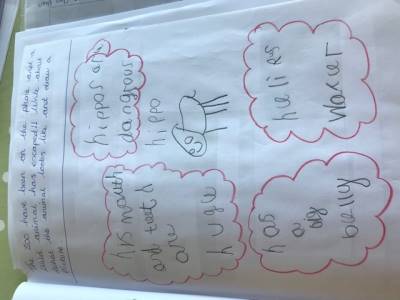 The zoo have been on the phone and a
wild animal has escaped!! Write about
what the animal looks like and draw a
picture
his mouth
and
are
huge
hippos are
dangrous
hippo
has
a
big
belly